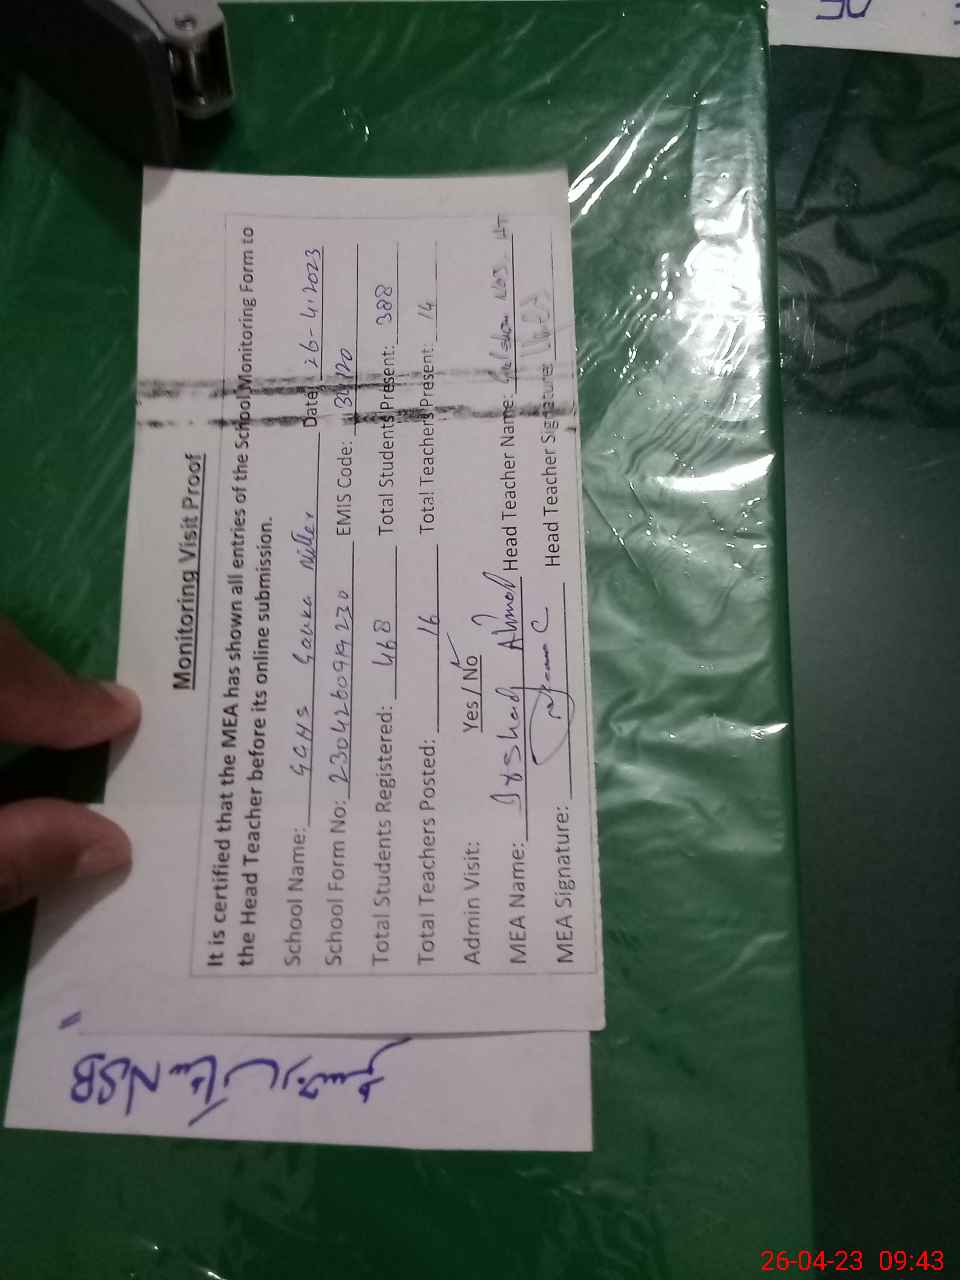 Monitoring Visit Proof
It is certified that the MEA has shown all entries of the School Monitoring Form to
the Head Teacher before its online submission.
School Name: GGHS Date: 26-4-2023
School Form No: 2304260919230 EMIS Code:
Total Students Registered: 468 Total Students Present: 388
Total Teachers Posted: 16 Total Teachers Present: 14
Admin Visit: Yes / No
MEA Name: Irshad Ahmed Head Teacher Name:
MEA Signature: Head Teacher Signature:
NSB
26-04-23 09:43